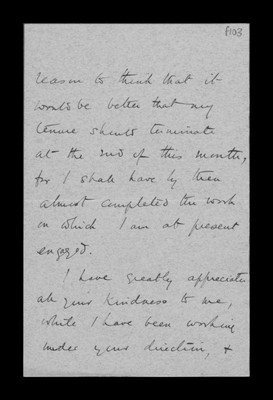 f103
reason to think that it
would be better that my
tenure should terminate
at the end of this month,
for I shall have by then
almost completed the work
on which I am at present
engaged.
I have greatly appreciated
all your kindness to me,
while I have been working
under your direction, &